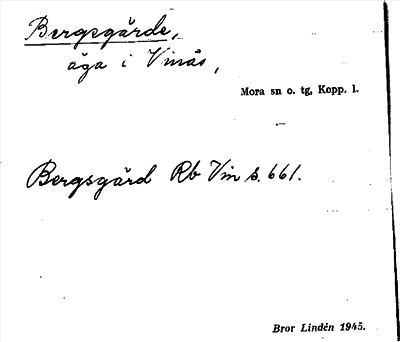 Bergsgärde,
äga i Vinäs,
Mora sn o. tg, Kopp. l.
Bergsgärd Rb Vin s. 661.
Bror Lindén 1945.